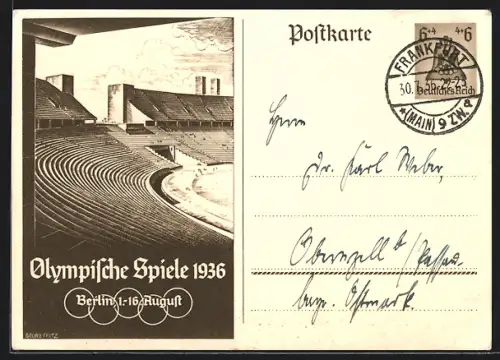 Olympische Spiele 1936
Berlin 1.-16. August
Postkarte
6+4 4+6
Deutsches Reich
FRANKFURT
30.7.36
(MAIN) 9 ZW. d
Herrn
Dr. Karl Weber,
Obernzell b/Passau
bayr. Ostmark.